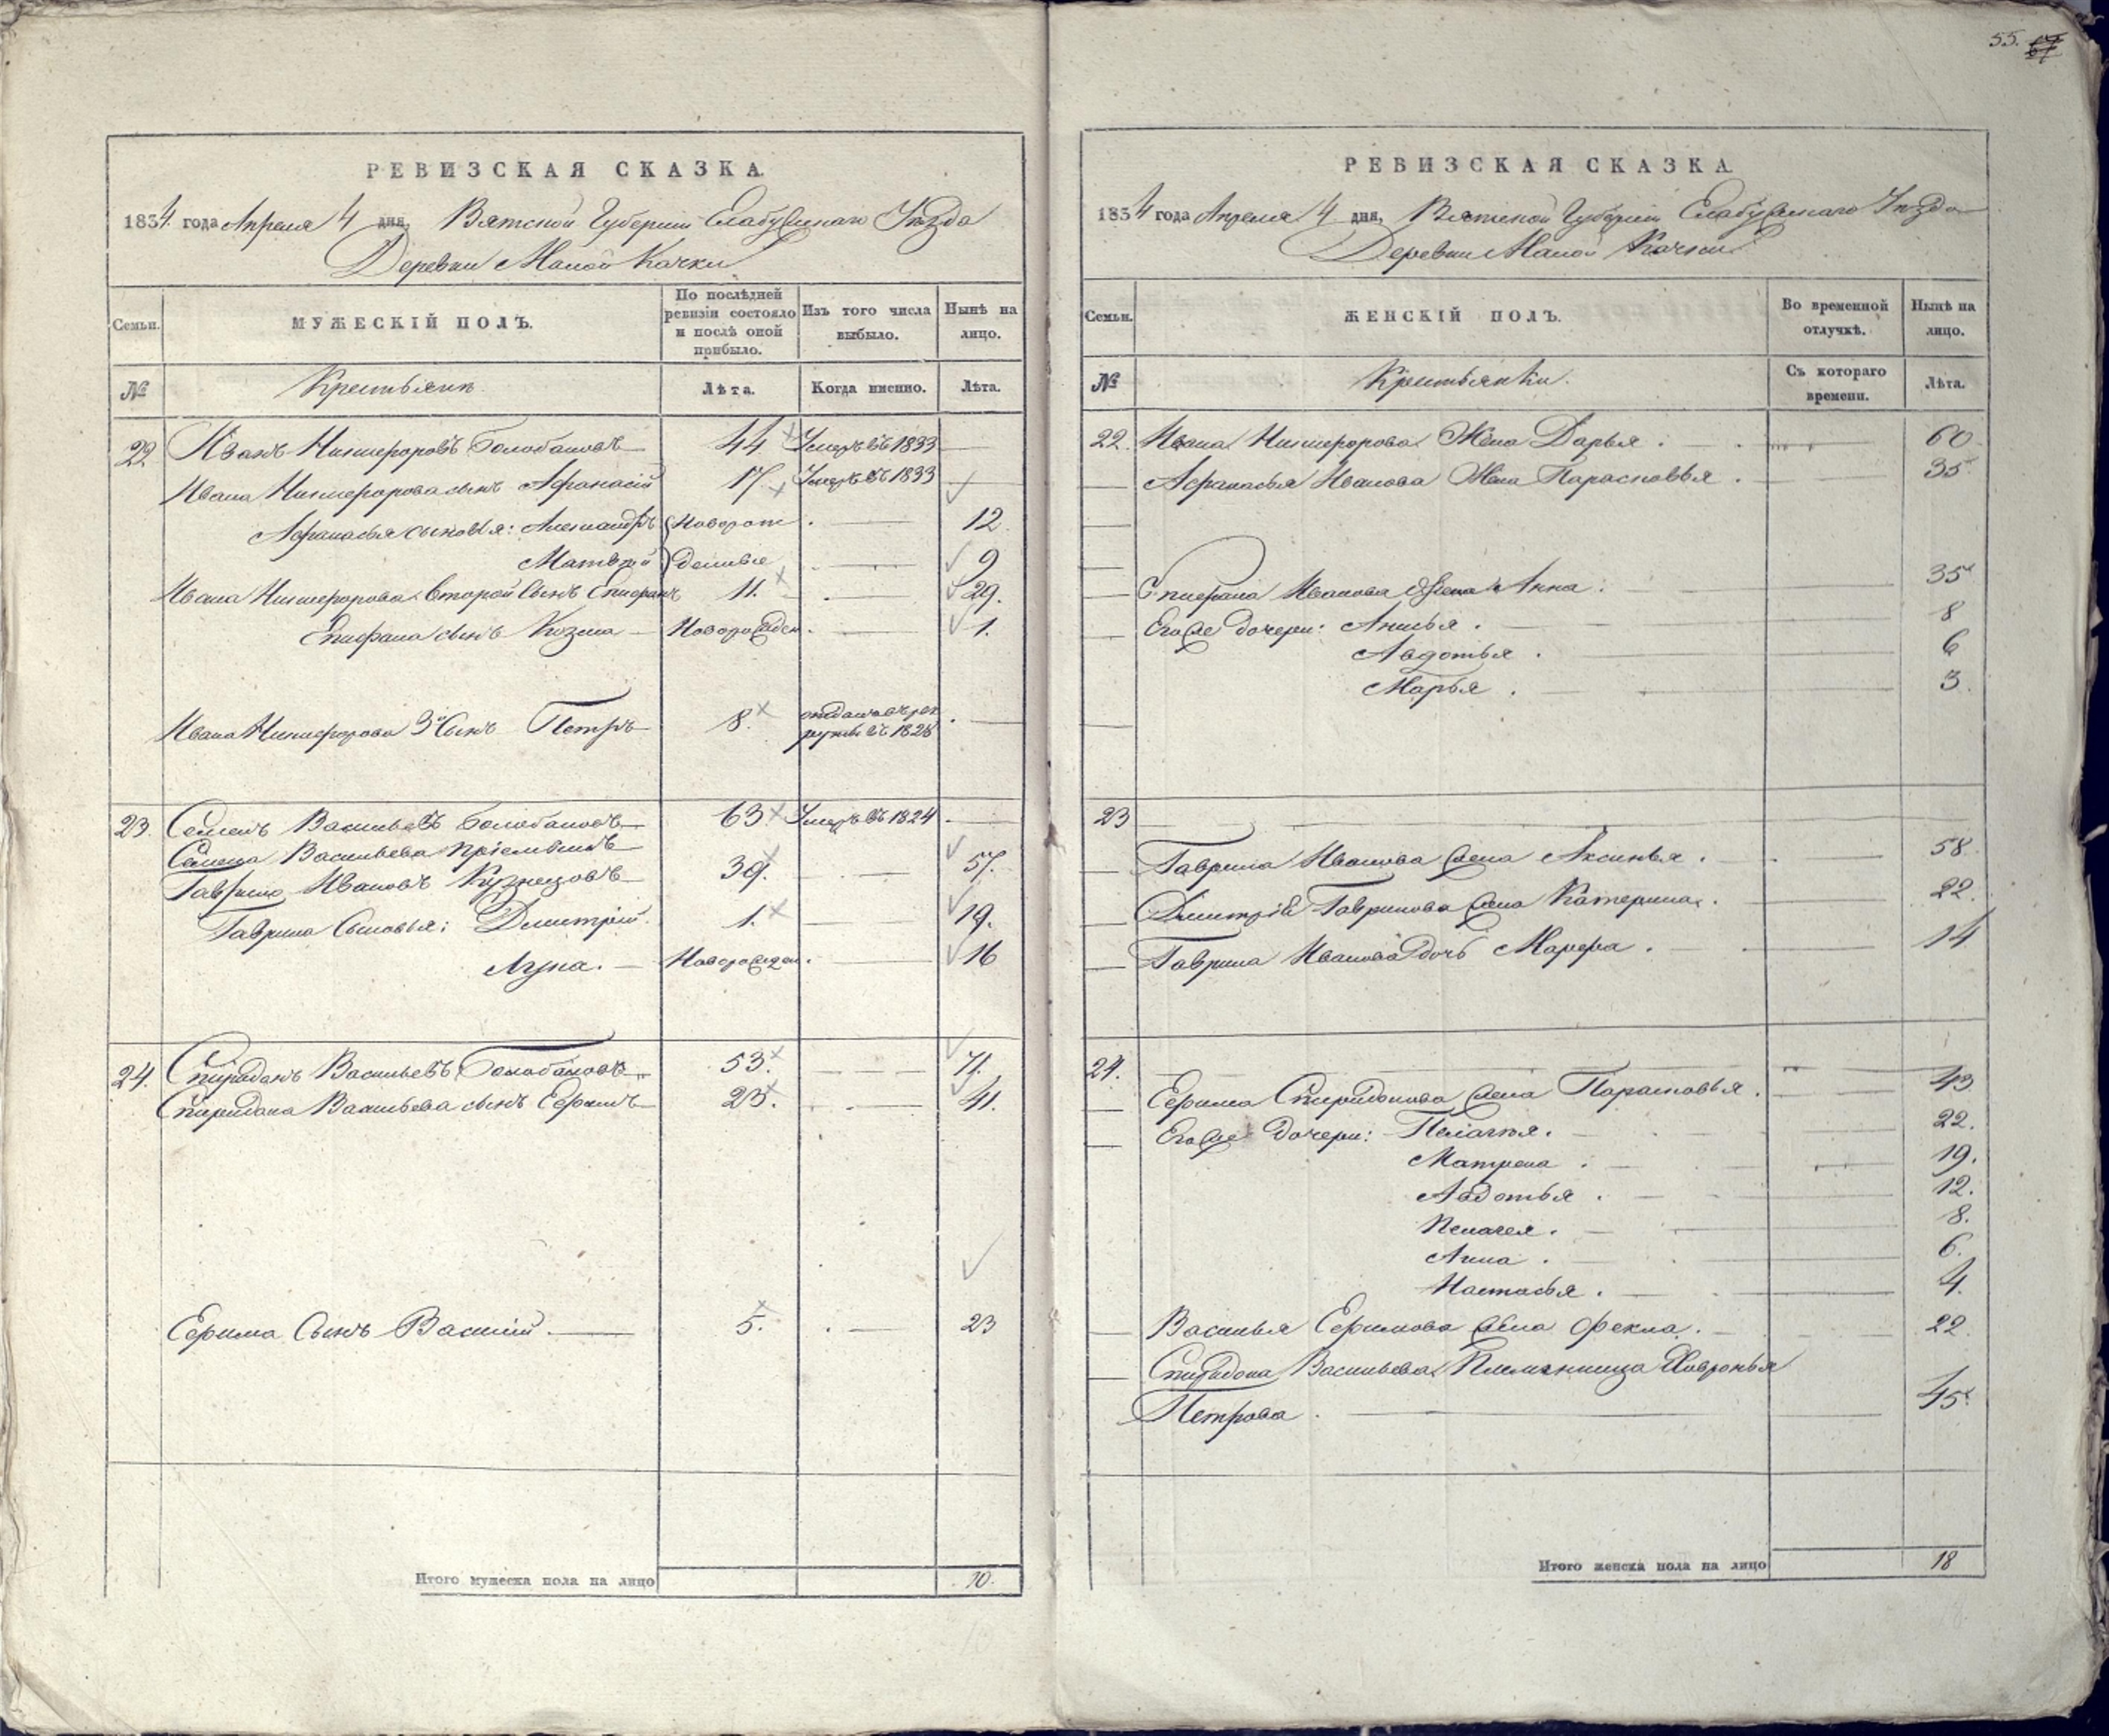 55.
РЕВИЗСКАЯ СКАЗКА.
1834 года Апреля 4 дня, Вятской Губернии Елабужскаго Уѣзда
Деревни Малой Качки
Семьи.
МУЖЕСКІЙ ПОЛЪ.
По послѣдней ревизіи состояло и послѣ оной прибыло.
Изъ того числа выбыло.
Нынѣ на лицо.
№
Крестьянъ
Лѣта.
Когда именно.
Лѣта.
22. Иванъ Никифоровъ Голобановъ 44 Умеръ въ 1833 —
Ивана Никифорова сынъ Афанасій 17 Умеръ въ 1833 —
Афанасья сыновья: Александръ Новорож . — 12.
Матвѣй денные . — 9
Ивана Никифорова второй сынъ Епифанъ 11. . — 29.
Епифана сынъ Козма — Новорожден . — 1.
Ивана Никифорова 3й сынъ Петръ 8. отданъ въ рек
руты въ 1828 . —
23. Семенъ Васильевъ Голобановъ 63 Умеръ въ 1824 . —
Семена Васильева пріемышъ
Гаврило Ивановъ Кузнецовъ 39. — 57.
Гаврила Сыновья: Дмитрій. 1. — 19.
Лука. — Новорожден . — 16
24. Спиридонъ Васильевъ Голобановъ 53. — 71.
Спиридона Васильева сынъ Ефимъ 23. . — 41.
Ефима Сынъ Василій. — 5. . — 23
Итого мужеска пола на лицо 10.
РЕВИЗСКАЯ СКАЗКА
1834 года Апреля 4 дня, Вятской Губерніи Елабужскаго Уѣзда
Деревни Малой Качки
Семьи.
ЖЕНСКІЙ ПОЛЪ.
Во временной отлучкѣ.
Нынѣ на лицо.
№
Крестьянки.
Съ котораго времени.
Лѣта.
22. Ивана Никифорова Жена Дарья . 60
Афанасья Иванова Жена Парасковья . 35
Епифана Иванова Жена Анна . 35
Его же дочери: Анисья . 8
Авдотья . 6
Марья . 3.
23
Гаврила Иванова жена Аксинья . 58
Дмитрія Гаврилова жена Катерина . 22.
Гаврила Иванова дочь Марфа . 14
24.
Ефима Спиридонова жена Парасковья . 43
Его же дочери: Пелагея. 22.
Матрена . 19.
Авдотья . 12.
Пелагея . 8.
Анна . 6.
Настасья . 4.
Василья Ефимова жена Фекла . 22
Спиридона Васильева Племянница Хавронья
Петрова . 45
Итого женска пола на лицо 18